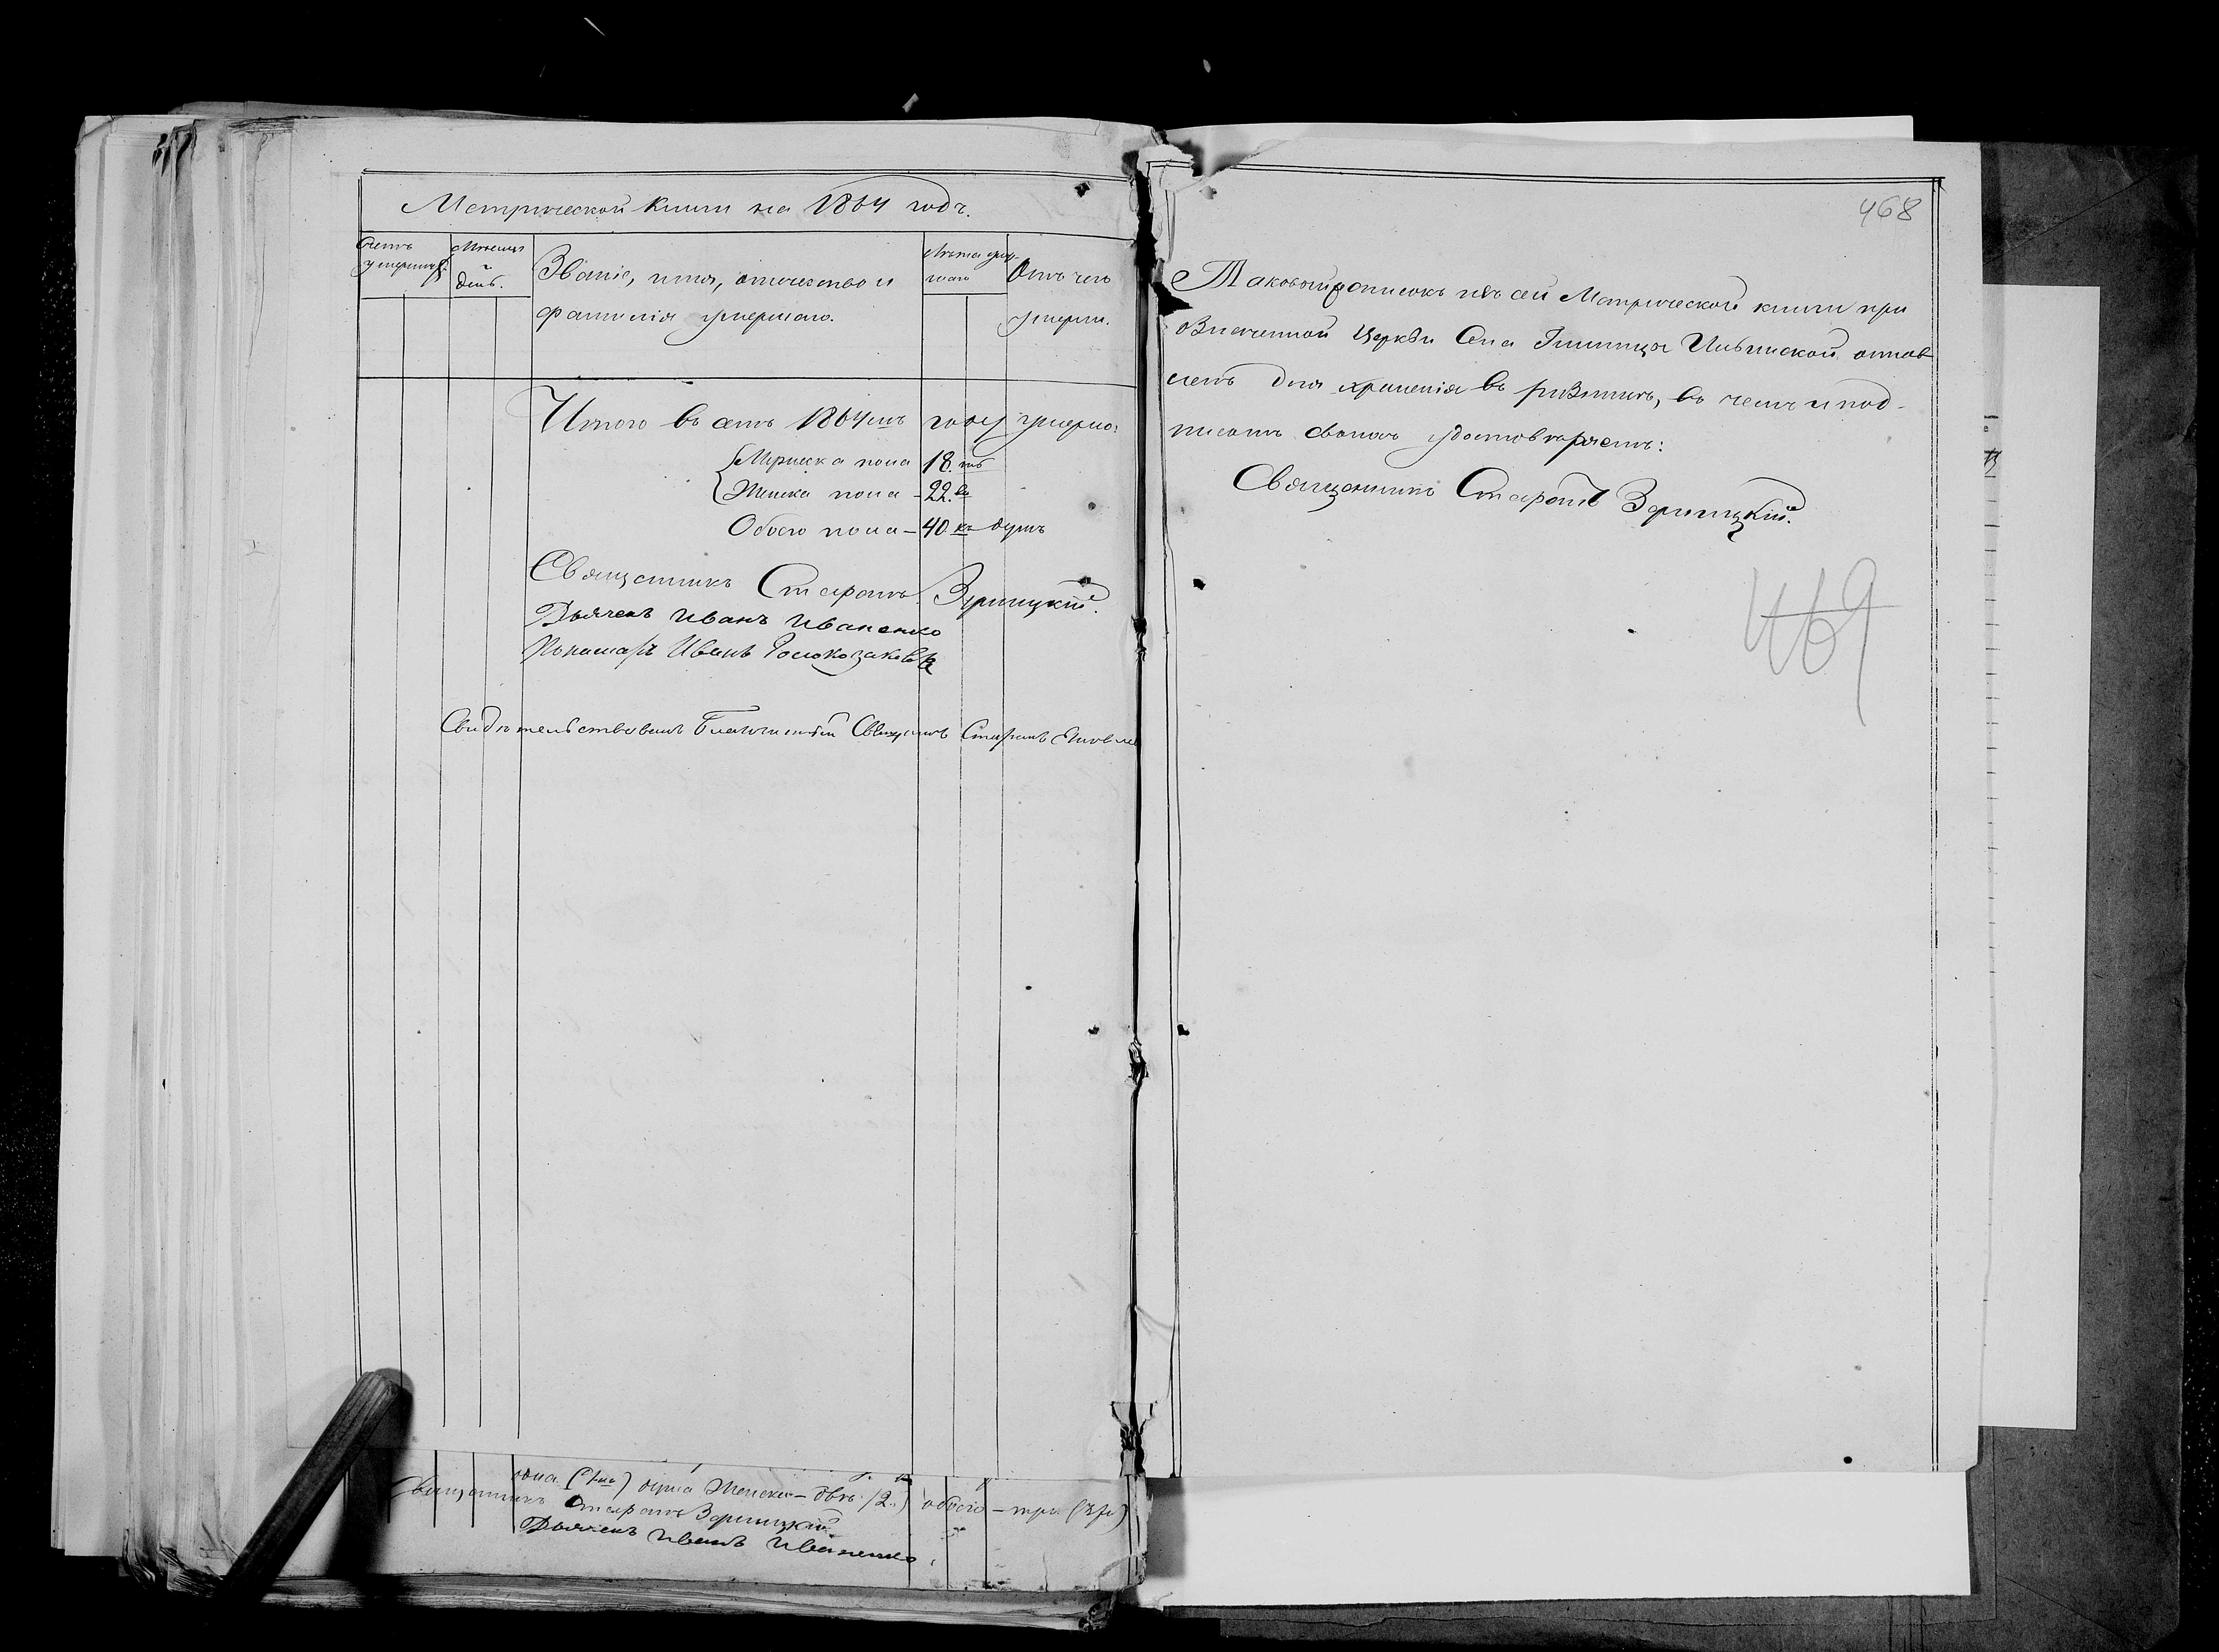 Метрической книги на 1864 годъ.
Счетъ умершихъ.
Мѣсяцъ и день.
Званіе, имя, отечество и
фамилія умершаго.
Лѣта умершаго
Отъ чего
умерли.
Итого въ семъ 1864мъ году умерло:
Мужеска пола 18.ть
Женска пола - 22.ва
Обоего пола - 40 къ душъ
Священникъ Стефанъ Зерницкій.
Дьячекъ Иванъ Иваненко
Понамарь Иванъ
Свидѣтельствовалъ Благочинный Священникъ Стефанъ
пола (1на) душа Женска - двѣ (2.) обоего - три (3ри)
Священникъ Стефанъ Зерницкій
Дьячекъ Иванъ Иваненко
468
Таковой списокъ изъ сей Метрической книги при
означенной Церкви Села Ильинской оставленъ
для храненія въ ризницѣ, въ чемъ и под-
писомъ своимъ удостовѣряемъ:
Священникъ Стефанъ Зерницкій.
469